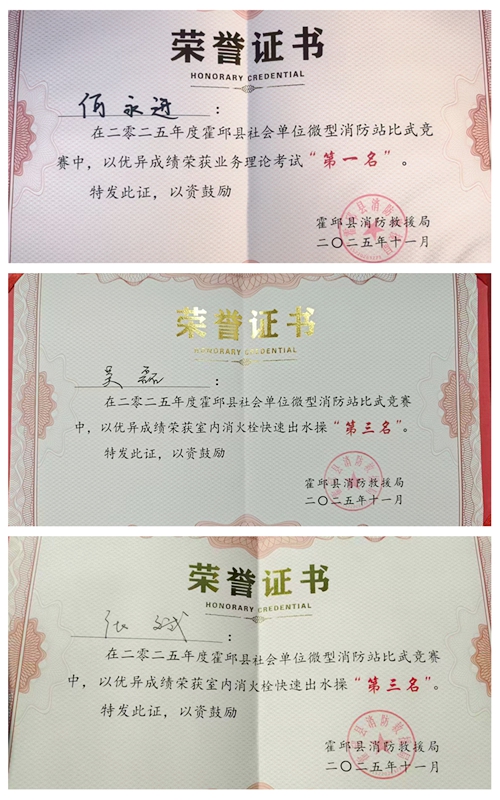 荣誉证书
HONORARY CREDENTIAL
何永进：
在二零二五年度霍邱县社会单位微型消防站比武竞
赛中，以优异成绩荣获业务理论考试“第一名”。
特发此证，以资鼓励
霍邱县消防救援局
二〇二五年十一月
荣誉证书
HONORARY CREDENTIAL
吴磊：
在二零二五年度霍邱县社会单位微型消防站比武竞赛
中，以优异成绩荣获室内消火栓快速出水操“第三名”。
特发此证，以资鼓励
霍邱县消防救援局
二〇二五年十一月
荣誉证书
HONORARY CREDENTIAL
张斌：
在二零二五年度霍邱县社会单位微型消防站比武竞赛
中，以优异成绩荣获室内消火栓快速出水操“第三名”。
特发此证，以资鼓励
霍邱县消防救援局
二〇二五年十一月